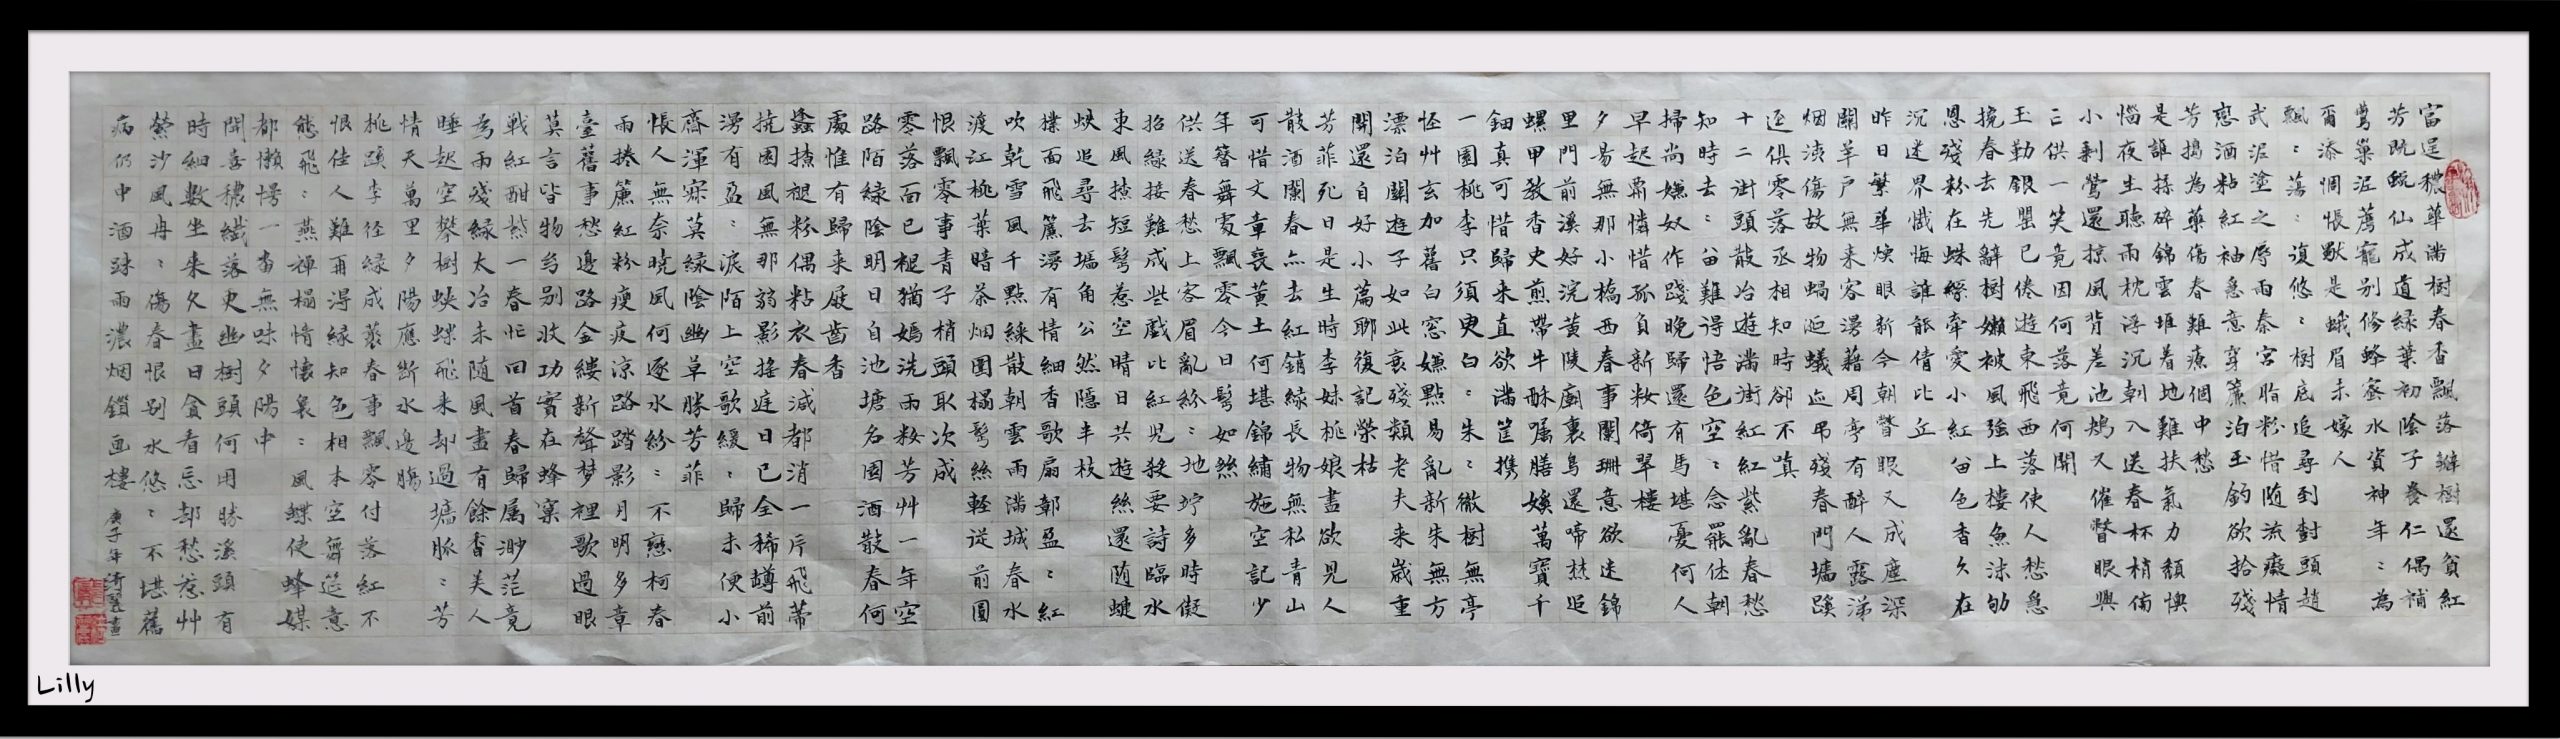 富逞穠華滿樹春香飄落瓣樹還貧紅
芳既蛻仙成道綠葉初陰子養仁偶補
鶯巢泥薦寵別修蜂蜜水資神年〻為
爾添惆悵獸是蛾眉未嫁人
飄〻蕩〻復悠〻樹底追尋到對頭趙
武泥塗之辱雨秦宮脂粉惜随流癡情
戀酒粘紅袖急意穿簾泊玉鈎欲拾殘
芳搗為藥傷春難療個中愁
是誰揉碎錦雲堆着地難扶氣力頹懊
惱夜生聽雨枕浮沉朝入送春杯梢傍
小剩鶯還掠風背差池鳷又催瞥眼興
亡供一笑竟因何落竟何開
玉勒銀罌已倦遊東飛西落使人愁急
挽春去先辭樹嬾被風強上樓魚沫劬
恩殘粉在蛛絲牽愛小紅留色香久在
沉迷界懺悔誰能倩比丘
昨日繁華煥眼新今朝瞥眼又成塵深
關羊戶無来客漫藉周亭有醉人露涕
烟洟傷故物蝸涎蟻迹吊殘春門墻蹊
迳俱零落丞相知時卻不嗔
十二街頭散冶遊滿街紅紅紫亂春愁
知時去〻留難得悟色空〻念罷休朝
掃尚嫌奴作踐晚歸還有馬堪憂何人
早起肅憐惜孤負新粧倚翠樓
夕昜無那小橋西春事闌珊意欲迷錦
里門前溪好浣黄陵廟裏鳥還啼焚追
螺甲教香史煎帶牛酥囑膳媄萬寶千
鈿真可惜歸来直欲滿筐携
一園桃李只須臾白〻朱〻徹樹無亭
怪艸玄加舊白窓嫌點易亂新朱無方
漂泊關遊子如此衰殘類老夫来歲重
開還自好小篇聊復記榮枯
芳菲死日是生時李妹桃娘盡欲見人
散酒闌春亦去紅銷綠長物無私青山
可惜文章喪黄土何堪錦繡施空記少
年簪舞處飄零今日鬢如絲
供送春愁上客眉亂紛〻地竚多時儗
招綠接難成些戲比紅児殺要詩臨水
東風撩短鬢惹空晴日共遊絲還随蝶
蛺追尋去墻角公然隱半枝
撲面飛簾漫有情細香歌扇鄣盈〻紅
吹乾雪風千點綵散朝雲雨滿城春水
渡江桃葉暗茶烟圍榻鬢絲輕從前圓
恨飄零事青子梢頭取次成
零落面已褪猶嫣洗雨粧芳艸一年空
路陌綠陰明日自池塘名園酒散春何
處惟有歸来屐齒香
蠢撩褪粉偶粘衣春減都消一片飛蒂
抗困風無那弱影搖庭日已全稀罇前
漫有盈〻淚陌上空歌緩〻歸未便小
齋渾寂莫綠陰幽草勝芳菲
悵人無奈曉風何逐水紛〻不戀柯春
雨捲簾紅粉瘦疲涼路踏影月明多章
臺舊事愁邊路金縷新聲梦裡歌過眼
莫言皆物幻別收功實在蜂窠
戦紅酣紫一春忙回首春歸属渺茫竟
為雨殘綠太冶未随風盡有餘香美人
睡起空攀樹蛺蝶飛来却過墻脈〻芳
情天萬里夕陽應斷水邊腸
桃蹊李徑綠成叢春事飄零付落紅不
恨佳人難再得緣知色相本空舞筵意
態飛〻燕禅榻情懷裊〻風蝶使蜂媒
都懶慢一畨無味夕陽中
開喜穠纖落更幽樹頭何用勝溪頭有
時細數坐来久盡日貪看忘却愁惹艸
縈沙風冉〻傷春恨别水悠〻不堪舊
病仍中酒踈雨濃烟鎖画樓
庚子年
Lilly